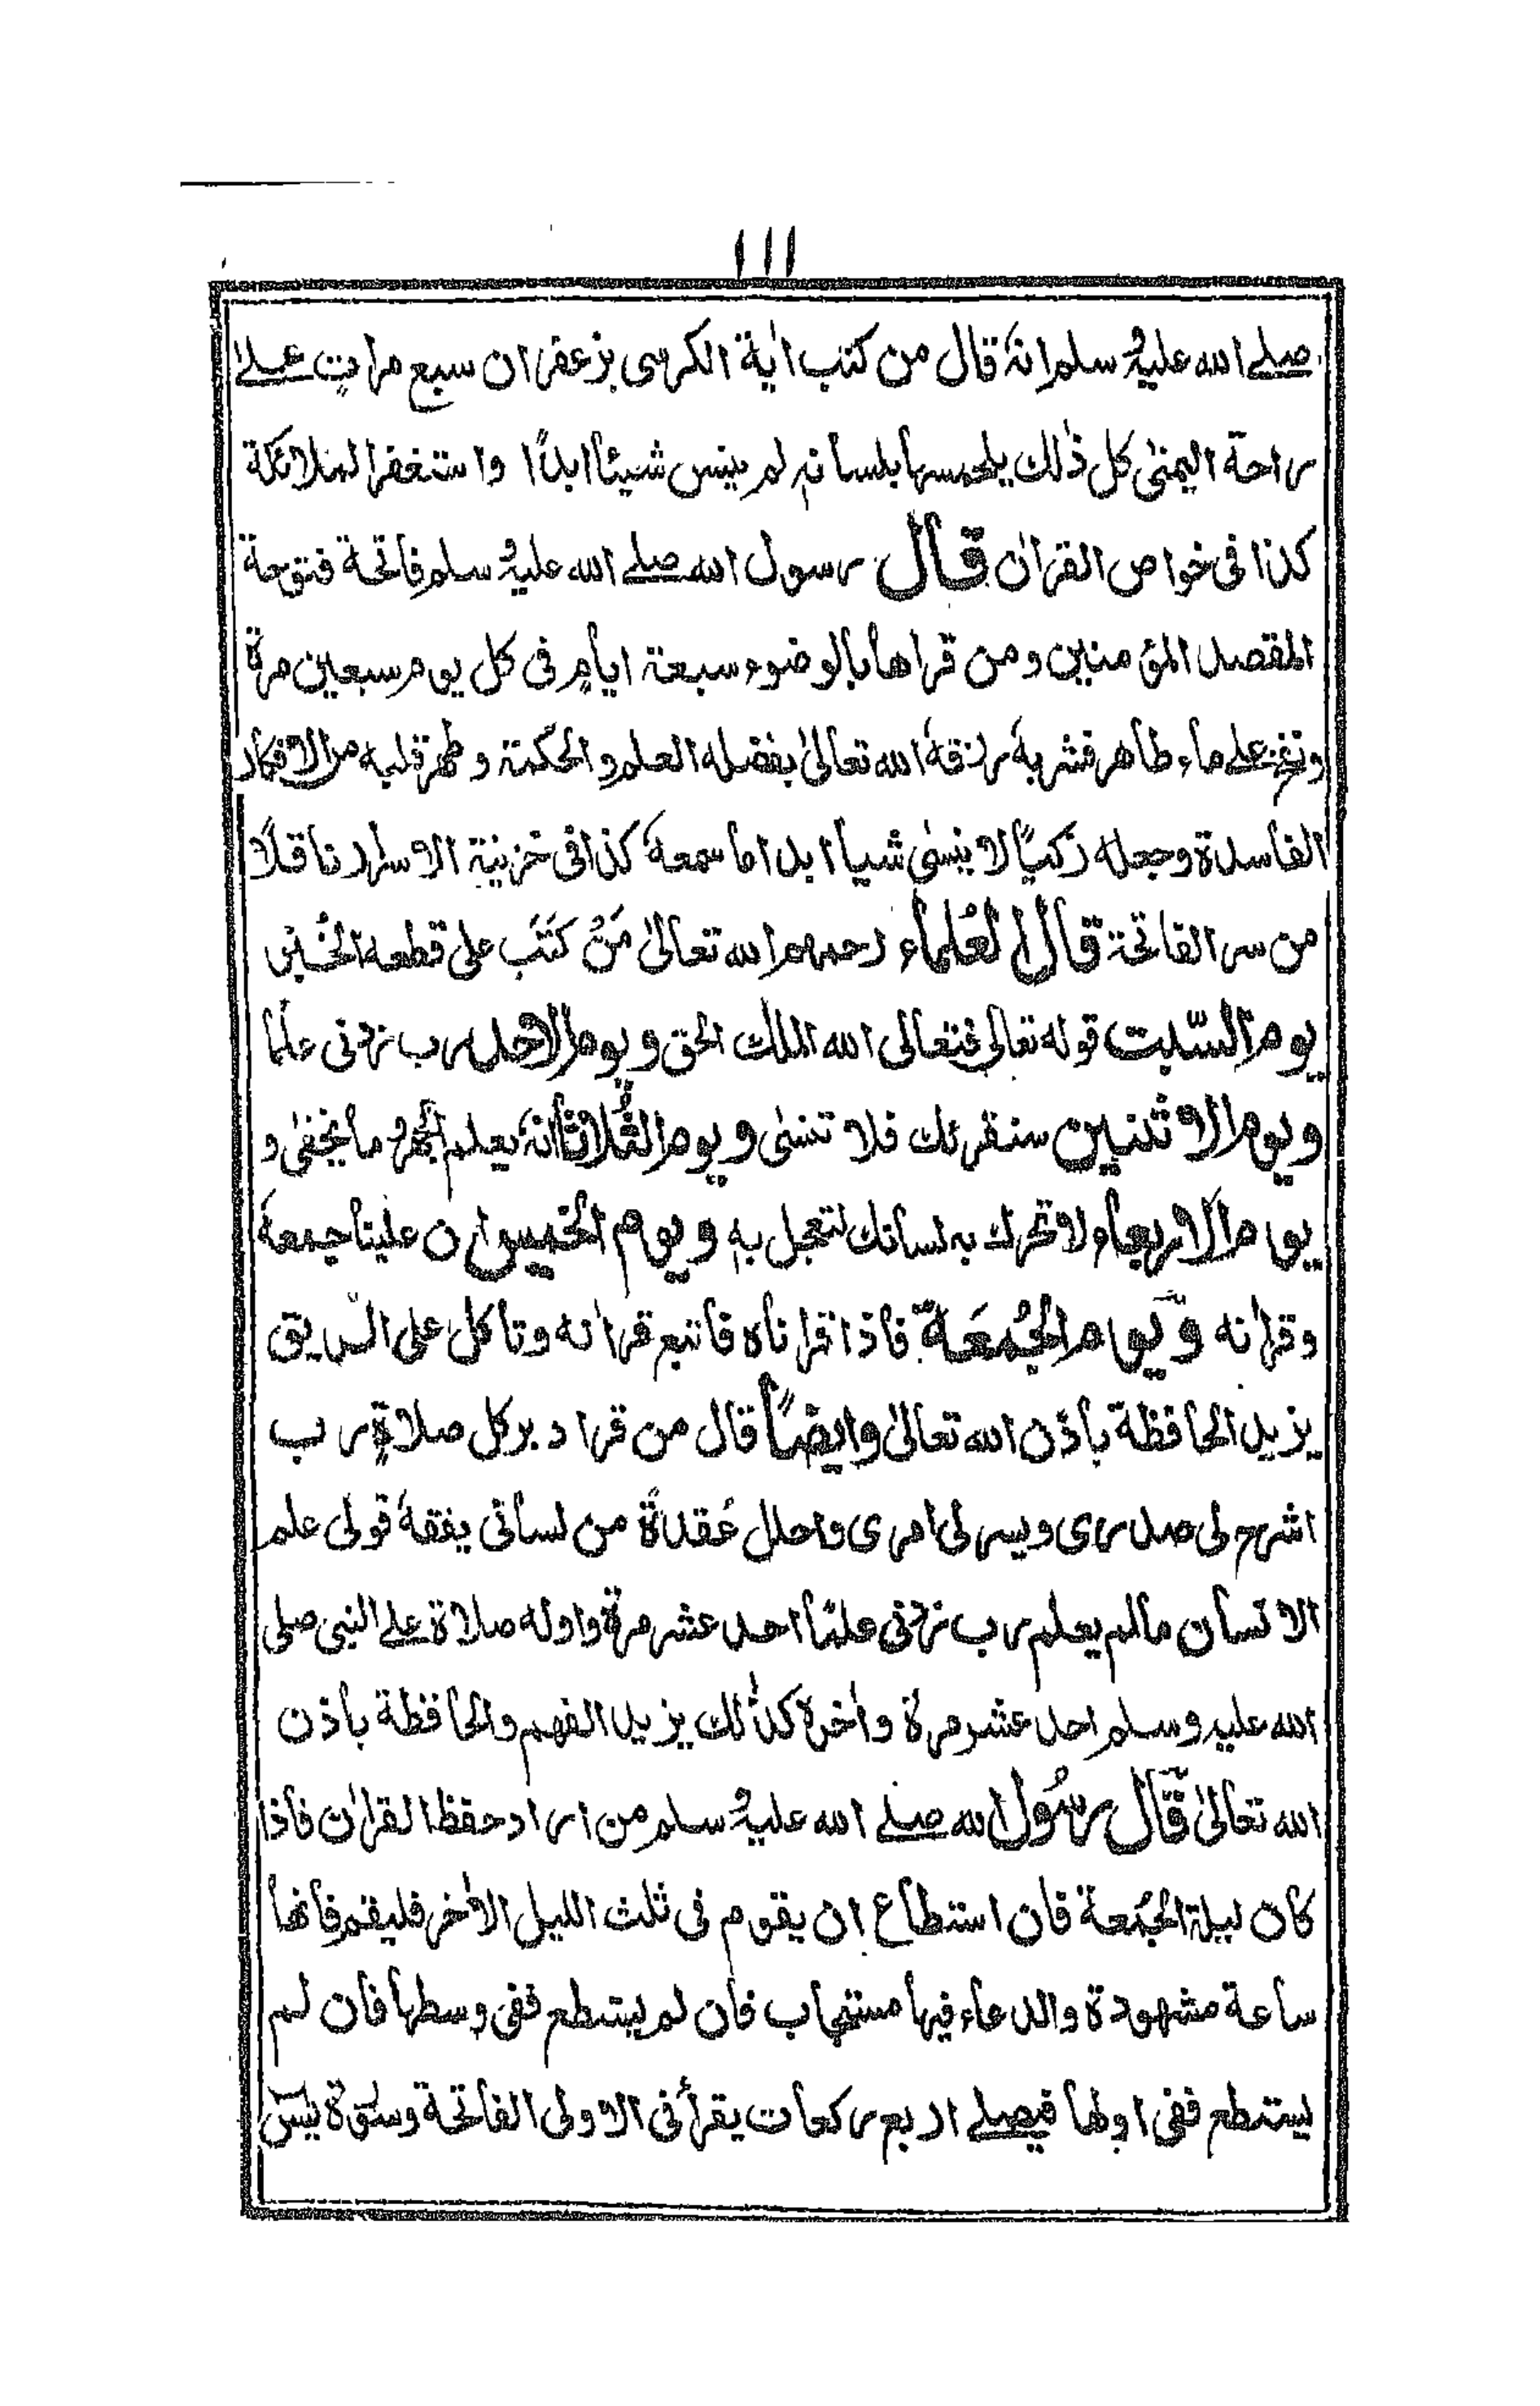 ١١١
صلے الله عليہ وسلم انہ قال من كتب اٰية الكرسى بزعفران سبع مراتٍ علےٰ
راحة اليمنىٰ كل ذٰلك يلحسها بلسانهٖ لم ينس شيئًا ابدًا واستغفر الملائكة
كذا فى خواص القراٰن قال رسول الله صلے الله عليہ وسلم فاتحة فتوحة
المقصد المؤمنين ومن قراها بالوضوء سبعة ايامٍ فى كل يوم سبعين مرة
علے ماء طاهر فشربهٗ رزقهٗ الله تعالىٰ بفضله العلم والحكمة وطهر قلبه من الافكار
الفاسدة وجعله ذكيًا لا ينسىٰ شيأ ابدا ما سمعهٗ كذا فى خزينة الاسرار ناقلًا
من سر الفاتحة قال العُلماء رحمهم الله تعالىٰ مَنْ كَتَبَ على قطعة الخُبز
يوم السّبت قوله تعالى فتعالى الله الملك الحق ويوم الاحد رب زدنى علمًا
ويوم الاثنين سنقرئك فلا تنسىٰ ويوم الثُّلاثا انهٗ يعلم الجهر وما يخفىٰ و
يوم الاربعاء لا تحرك به لسانك لتعجل بهٖ ويوم الخميس ان علينا جمعهٗ
وقراٰنه ويوم الجُمعَة فاذا قراناه فاتبع قراٰنه وتاكل على الريق
يزيد الحافظة باذن الله تعالىٰ وايضًا قال من قرا دبر كل صلاةٍ رب
اشرح لى صدرى ويسر لى امرى واحلل عُقدةً من لسانى يفقهٗ قولى علم
الانسان مالم يعلم رب زدنى علمًا احد عشر مرة واوله صلاة علے النبى صلى
الله عليه وسلم احد عشر مرة واٰخره كذٰلك يزيد الفهم والحافظة باذن
الله تعالىٰ قال رسُول الله صلے الله عليہ وسلم من اراد حفظ القراٰن فاذا
كان ليلة الجُمعة فان استطاع ان يقوم فى ثلث الليل الاٰخر فليقم فانها
ساعة مشهودة والدعاء فيها مستجاب فان لم يستطع ففى وسطها فان لم
يستطع ففى اولها فيصلے اربع ركعات يقرأ فى الاولى الفاتحة وسورة يٰسٓ